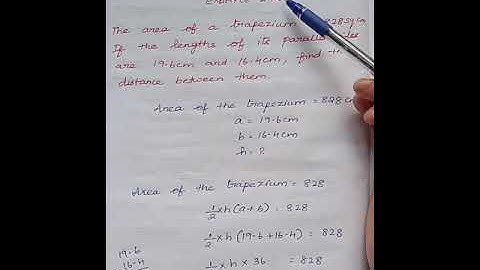 The area of a trapezium 828 sq cm
If the lengths of its
are 19.6cm and 16.4cm, find
distance between them.
Area of the trapezium = 828
a = 19.6cm
b = 16.4cm
h = ?
Area of the trapezium = 828
1/2 × h (a+b) = 828
1/2 × h (19.6+16.4) = 828
19.6
16.4
1/2 × h × 36 = 828